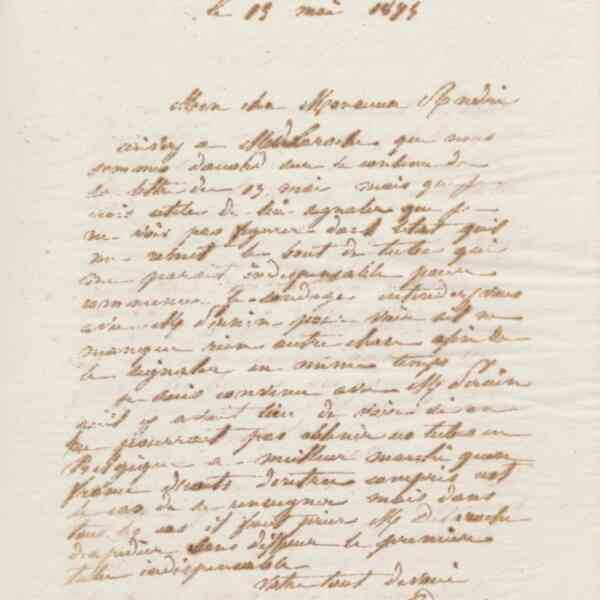 le 13 mai 1873
Mon cher Monsieur André
écrivez a M Delaroche que nous
sommes d'accord sur le contenu de
sa lettre du 13 mai mais que je
crois utile de lui signaler que je
ne vois pas figurer dans l'état qu'il
me remet le bout de tube qui
me parait indispensable pour
commencer le sondage entendez vous
avec M pour voir s'il ne
manque rien autre chose afin de
le signaler en même temps
je suis convenu avec M
qu'il y avait lieu de voir si on
ne pourrait pas obtenir ces tubes en
Belgique a meilleur marché qu'en
france droits d'entrée compris c'est
le cas de se renseigner mais dans
tous les cas il faut prier M Delaroche
d'expédier sans différer le premier
tube indispensable
Votre tout dévoué